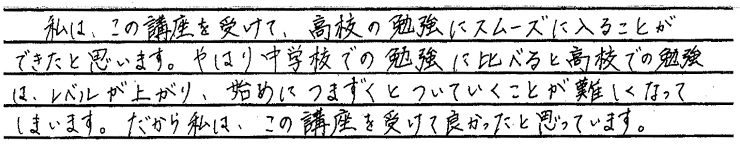 私は、この講座を受けて、高校の勉強にスムーズに入ることが
できたと思います。やはり中学校での勉強に比べると高校での勉強
は、レベルが上がり、始めにつまずくとついていくことが難しくなって
しまいます。だから私は、この講座を受けて良かったと思っています。